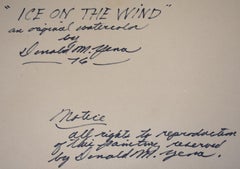 "ICE ON THE WIND"
an original watercolor
by
Donald M. Yena
76
Notice
All rights to reproduction
of this painting reserved
by Donald M. Yena.